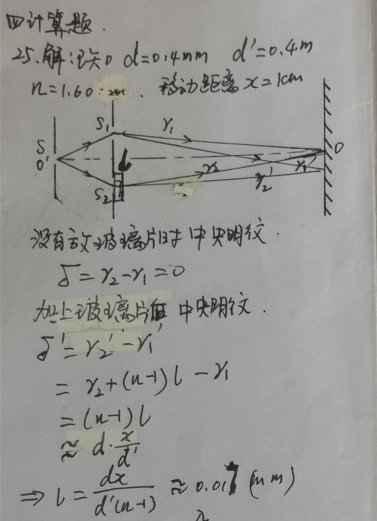 四计算题.
25.解:如图 d=0.4mm d'=0.4m
n=1.60 . 移动距离 x=1cm
S₁ r₁
S
O' O
l r₂ r₁'
S₂ r₂'
没有放玻璃片时 中央明纹.
δ=r₂-r₁=0
加上玻璃片后 中央明纹.
δ'=r₂'-r₁'
=r₂+(n-1)l-r₁
=(n-1)l
≈d·x/d'
⇒l=dx/d'(n-1)≈0.017(mm)